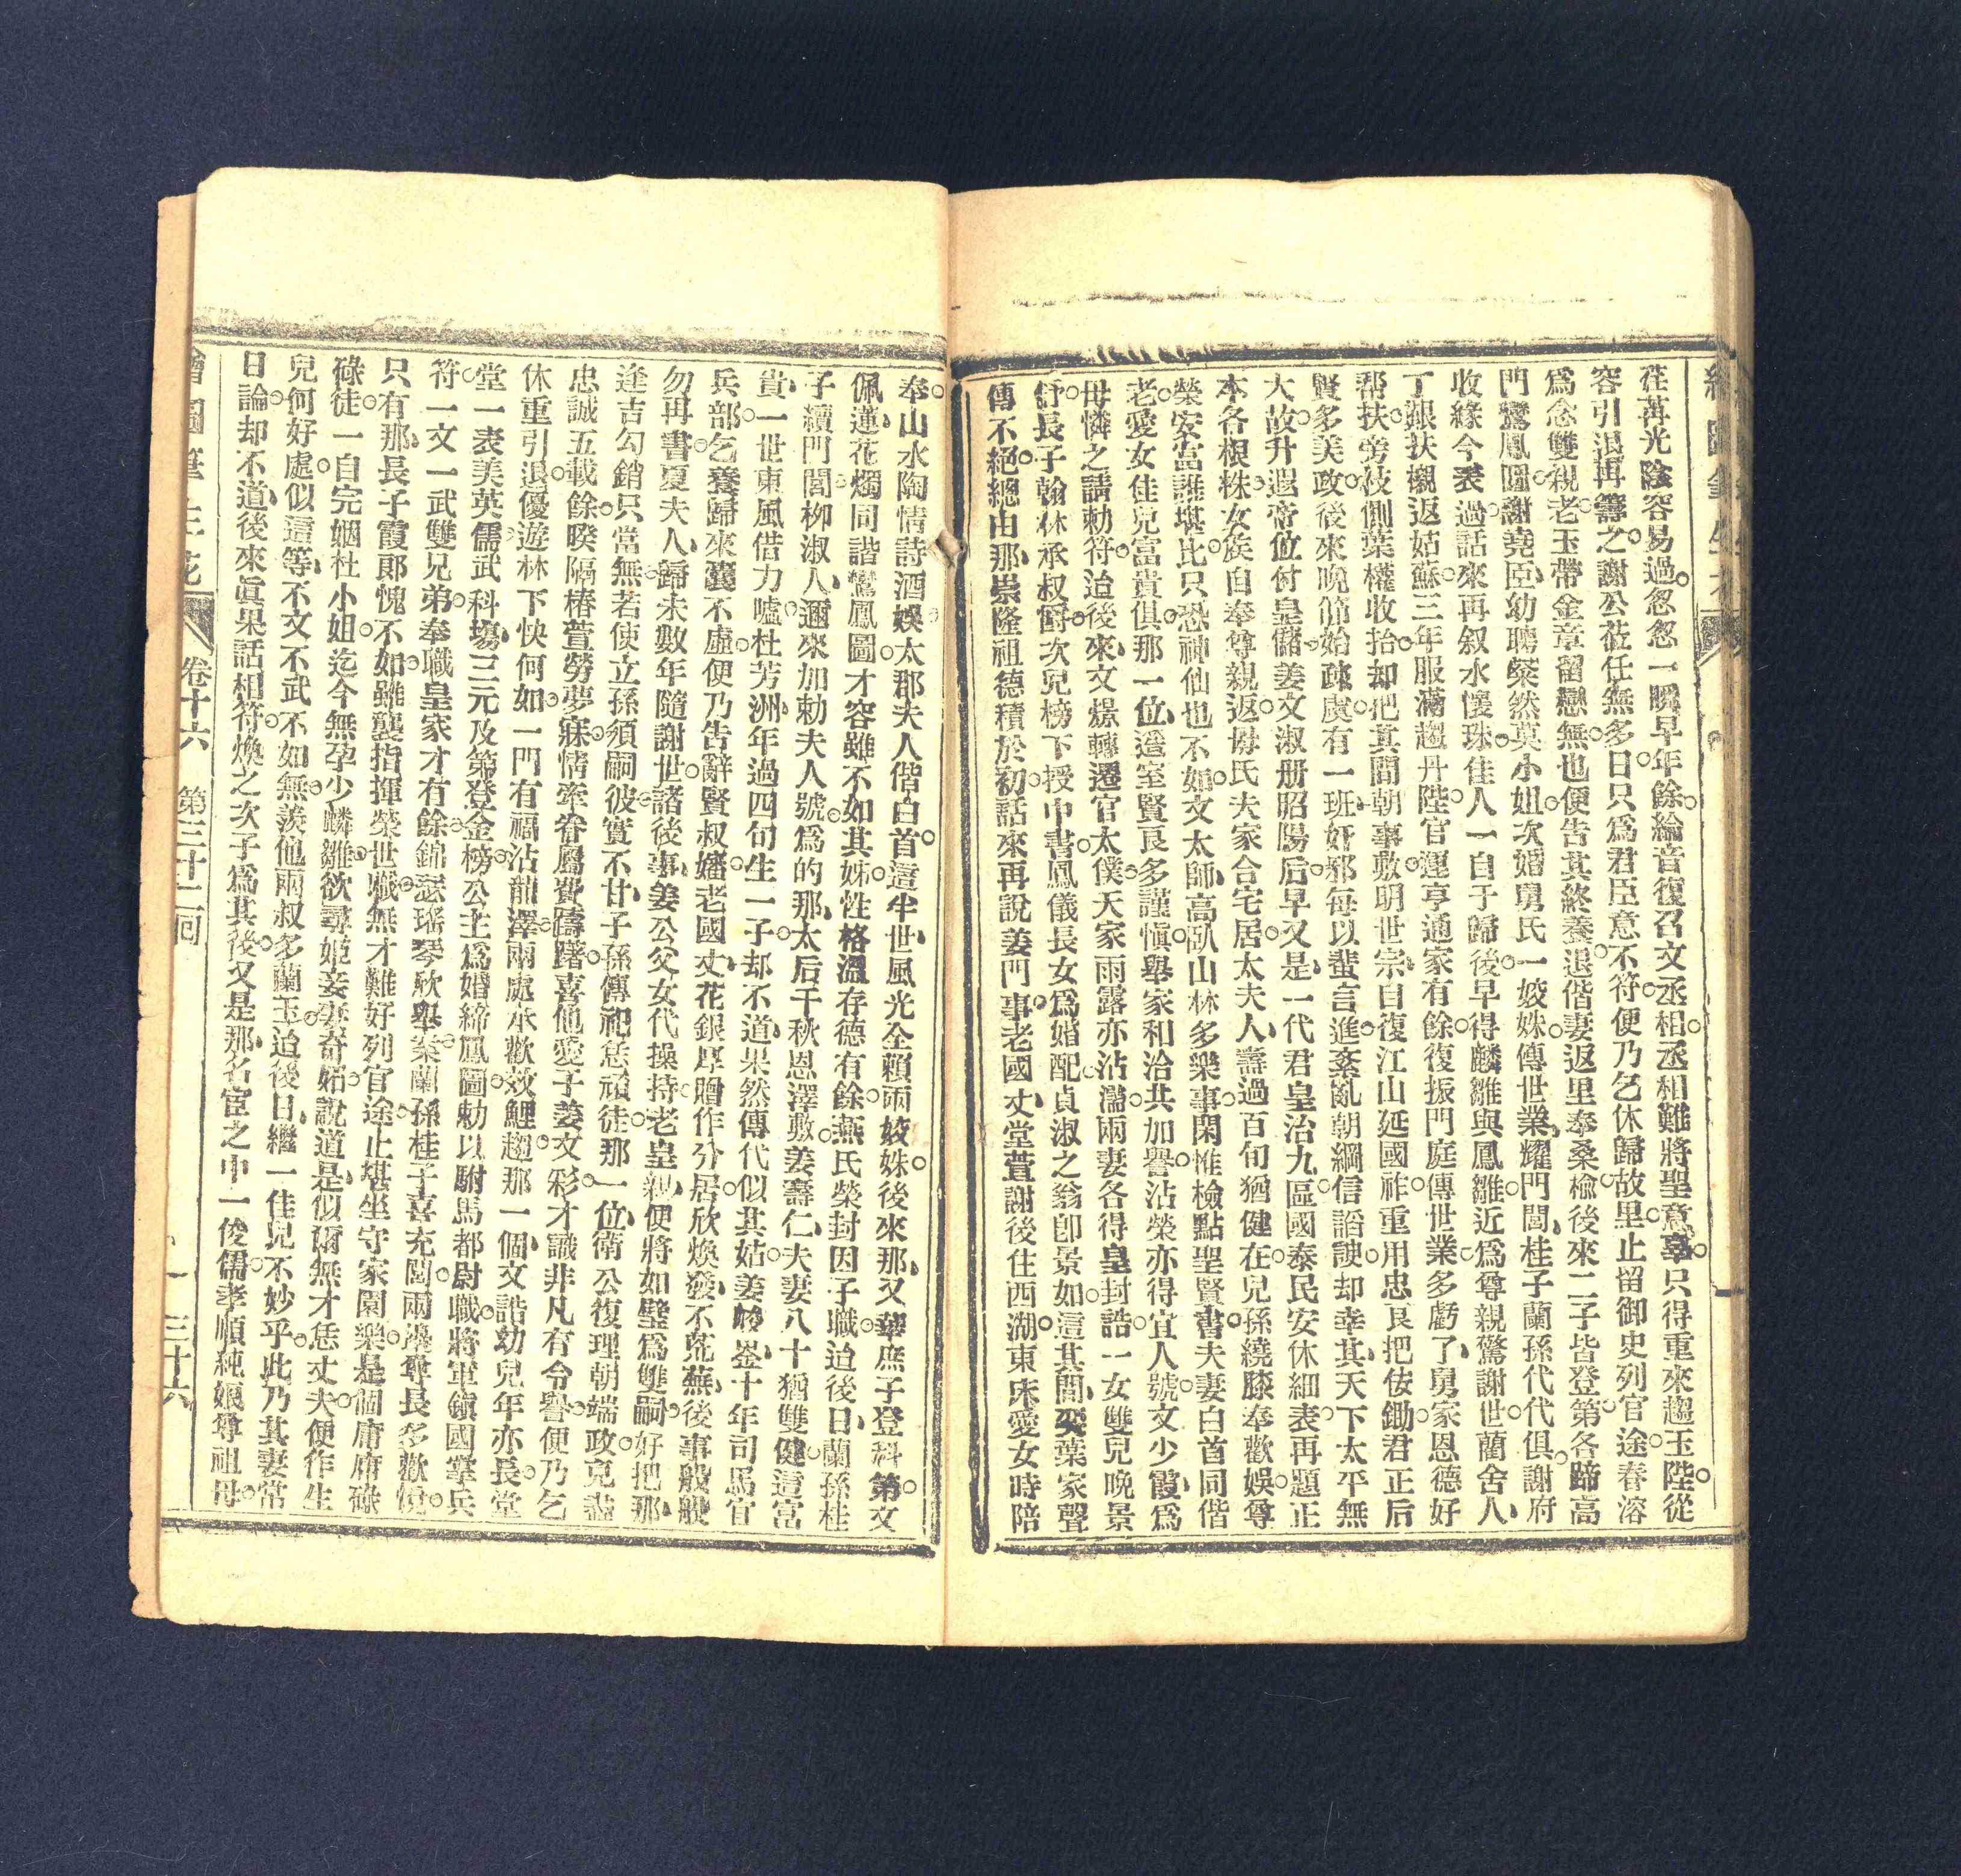 荏苒光陰容易過忽忽一瞬早年餘綸音復召文丞相丞相難將聖意辜只得重來趨玉陛從
容引退再籌之謝公莅任無多日只爲君臣意不符便乃乞休歸故里止留御史列官途春溶
爲念雙親老玉帶金章留戀無也便告其終養退偕妻返里奉桑榆後來二子皆登第各蹄高
門鸞鳳圖謝堯臣幼聘蔡然莫小姐次婚舅氏一姣姝傳世業耀門閭桂子蘭孫代代俱謝府
收緣今表過話來再叙水懷珠佳人一自于歸後早得麟雛與鳳雛近爲尊親驚謝世藺舍人
丁艱扶櫬返姑蘇三年服滿趨丹陛官運亨通家有餘復振門庭傳世業多虧了舅家恩德好
帮扶旁枝側葉權收拾却把其間朝事敷明世宗自復江山延國祚重用忠良把佞鋤君正后
賢多美政後來晚節始疎虞有一班奸邪每以蜚言進紊亂朝綱信謟諛却幸其天下太平無
大故升遐帝位付皇儲姜文淑册昭陽后早又是一代君皇治九區國泰民安休細表再題正
本各根株女族自奉尊親返毋氏夫家合宅居太夫人壽過百旬猶健在兒孫繞膝奉歡娛尊
榮安富誰堪比只恐神仙也不如文太師高臥山林多樂事閑惟檢點聖賢書夫妻白首同偕
老愛女佳兒富貴俱那一位遣室賢良多謹愼舉家和洽共加譽沾榮亦得宜人號文少霞爲
毋憐之請勅符迨後來文燝轉遷官太僕天家雨露亦沾濡兩妻各得皇封誥一女雙兒晚景
舒長子翰林承叔爵次兒榜下授中書鳳儀長女爲婚配貞淑之翁卽景如這其間奕葉家聲
傳不絕總由那崇隆祖德積於初話來再說姜門事老國丈堂萱謝後住西湖東床愛女時陪
奉山水陶情詩酒娛太郡夫人偕白首這半世風光全賴兩姣姝後來那又華庶子登科第文
佩蓮花燭同諧鸞鳳圖才容雖不如其姊性格溫存德有餘燕氏榮封因子職迨後日蘭孫桂
子續門閭柳淑人邇來加勅夫人號爲的那太后千秋恩澤敷姜壽仁夫妻八十猶雙健這富
貴一世東風借力噓杜芳洲年過四旬生一子却不道果然傳代似其姑姜峻崟十年司馬官
兵部乞養歸來囊不虛便乃告辭賢叔嬸老國丈花銀厚贈作分居欣煥發不荒蕪後事般般
勿再書夏夫人歸未數年隨謝世諸後事姜公父女代操持老皇親便將如璧爲雙嗣好把那
逢吉勾銷只當無若使立孫須嗣彼實不甘子孫傳祀恁頑徒那一位衛公復理朝端政克盡
忠誠五載餘暌隔椿萱勞夢寐情牽眷屬費躊躇喜他愛子姜文彩才識非凡有令譽便乃乞
休重引退優遊林下快何如一門有福沾龍澤兩處承歡效鯉趨那一個文誥幼兒年亦長堂
堂一表美英儒武科塲三元及第登金榜公主爲婚締鳳圖勅以駙馬都尉職將軍鎭國掌兵
符一文一武雙兄弟奉職皇家才有餘錦瑟瑤琴欣舉案蘭孫桂子喜充閭兩邊尊長多歡愉
只有那長子霞郞愧不如雖襲指揮榮世職無才難好列官途止堪坐守家園樂是個庸庸碌
碌徒一自完姻杜小姐迄今無孕少麟雛欲尋姬妾妻奇妬說道是似爾無才恁丈夫便作生
兒何好處似這等不文不武不如無羨他兩叔多蘭玉迨後日繼一佳兒不妙乎此乃其妻常
日論却不道後來眞果話相符煥之次子爲其後又是那名宦之中一俊儒孝順純嫏尊祖毋
繪圖筆生花 卷十六 第三十二回 三十六